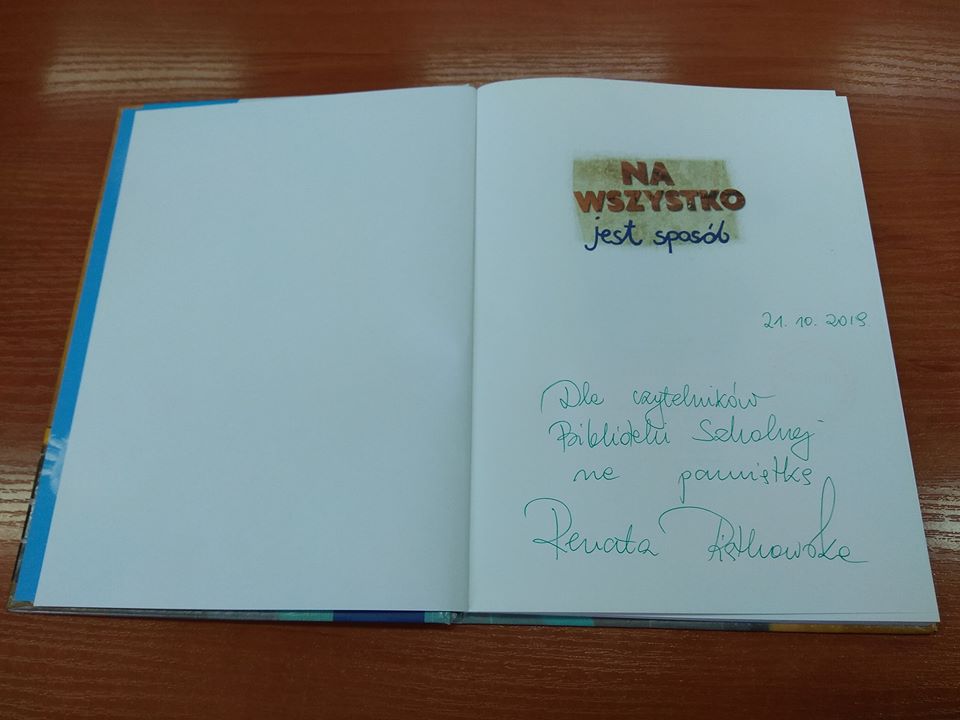 NA
WSZYSTKO
jest sposób
21.10.2019
Dla czytelników
Biblioteki Szkolnej
na pamiątkę
Renata Piątkowska